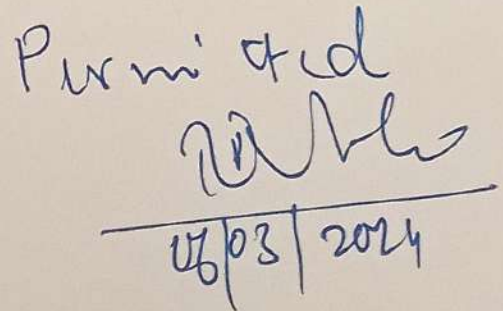 Permitted
06/03/2024